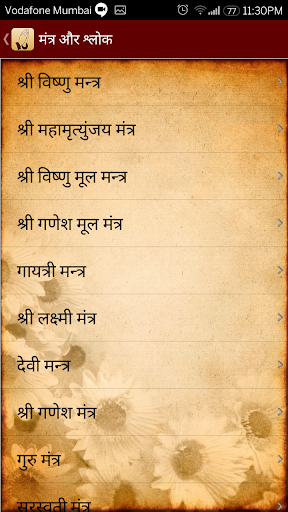 Vodafone Mumbai 77 11:30PM
मंत्र और श्लोक
श्री विष्णु मन्त्र
श्री महामृत्युंजय मंत्र
श्री विष्णु मूल मन्त्र
श्री गणेश मूल मंत्र
गायत्री मन्त्र
श्री लक्ष्मी मंत्र
देवी मन्त्र
श्री गणेश मंत्र
गुरु मंत्र
सरस्वती मंत्र